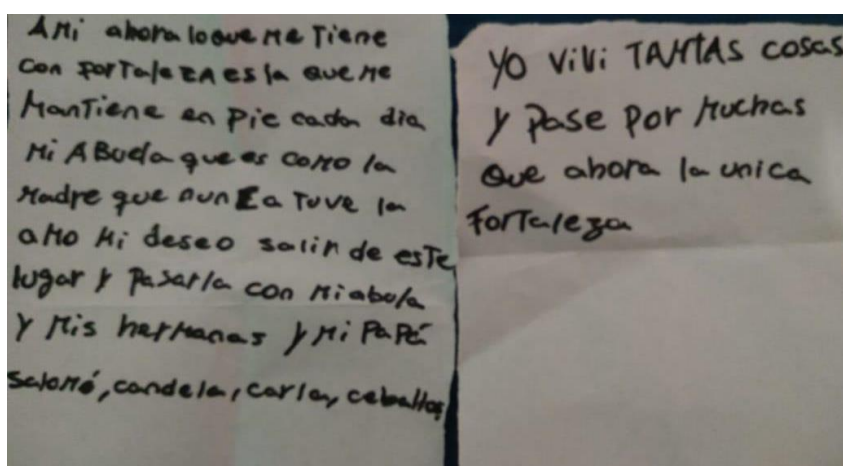 A Mi ahora lo que Me Tiene
con ForTaleza es la que Me
Mantiene en pie cada dia
Mi ABuela que es coMo la
Madre que nunca Tuve la
aMo Mi deseo salir de esTe
lugar y Pasarla con Mi abula
Y Mis herManas y Mi PaPá
SaloMé, candela, carla, ceballos
YO ViVi TANTAS cosas
y Pase por Muchas
que ahora la unica
ForTaleza